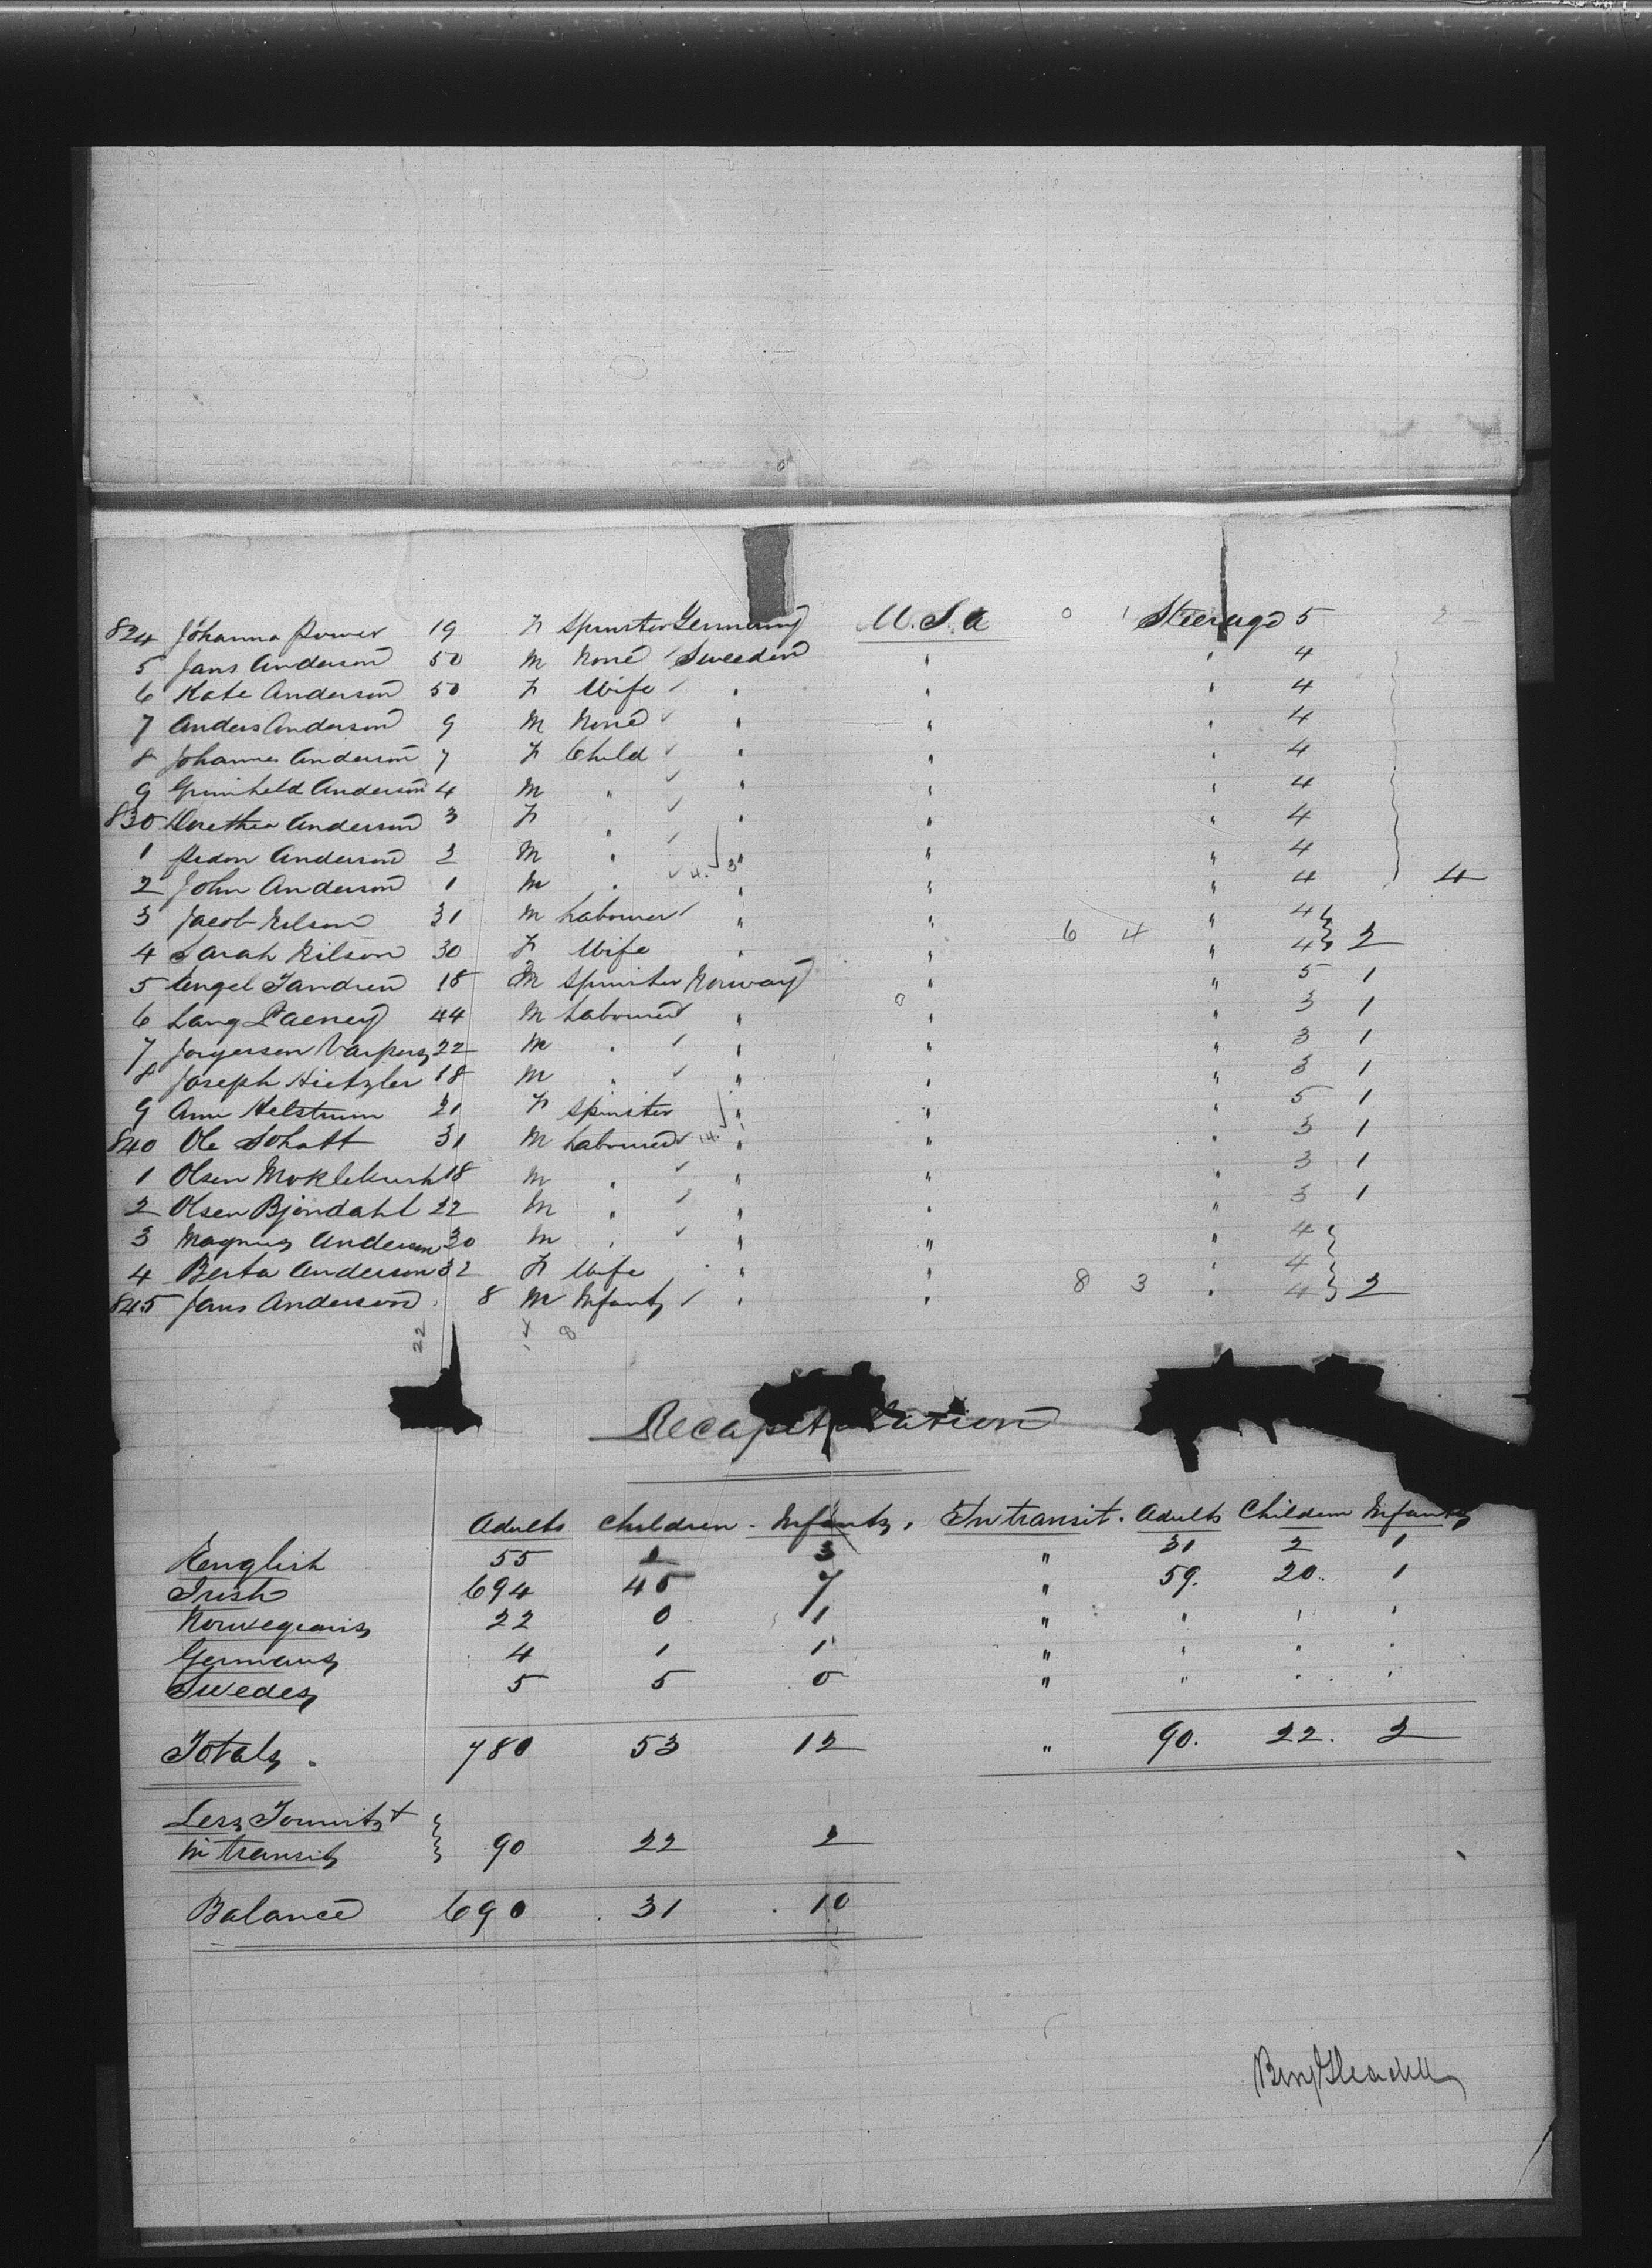 824 Johanna Power 19 F Spinster Germany U.S.A 0 1 Steerage 5
5 Jans Anderson 50 M None Sweeden " " 4
6 Kate Anderson 50 F Wife " " " 4
7 Anders Anderson 9 M None " " " 4
8 Johannes Anderson 7 F Child " " " 4
9 Anderson 4 M " " " " 4
830 Dorethea Anderson 3 F " " " " 4
1 Anderson 2 M " 3 " " " 4
2 John Anderson 1 M " 4 " " " 4 4
3 Jacob Nilson 31 M Labourer " " " 4
4 Sarah Nilson 30 F Wife " " 6 4 " 4 2
5 Engel Tandren 18 M Spinster Norway " " 5 1
6 Lang 44 M Labourer " " " 3 1
7 Jorgersen 22 M " " " " 3 1
8 Joseph Hietzler 18 M " " " " 3 1
9 Ann Helstrum 21 F Spinster " " " 5 1
840 Ole Schatt 31 M Labourer 14 " " " 3 1
1 Olsen 18 M " " " " 3 1
2 Olsen Bjondahl 22 M " " " " 3 1
3 Magnus Anderson 30 M " " " " 4
4 Berta Anderson 32 F Wife " " " 4
845 Jans Anderson 8 M Infants " " 8 3 " 4 2
22 8
Recapitulation
Adults Children - Infants. In transit. Adults Children Infants
English 55 2 3 " 31 2 1
Irish 694 45 7 " 59. 20. 1
Norwegians 22 0 1 " " " "
Germans 4 1 1 " " " "
Swedes 5 5 0 " " " "
Totals. 780 53 12 " 90. 22. 2
Less Tourists +
in transit 90 22 2
Balance 690 31 10